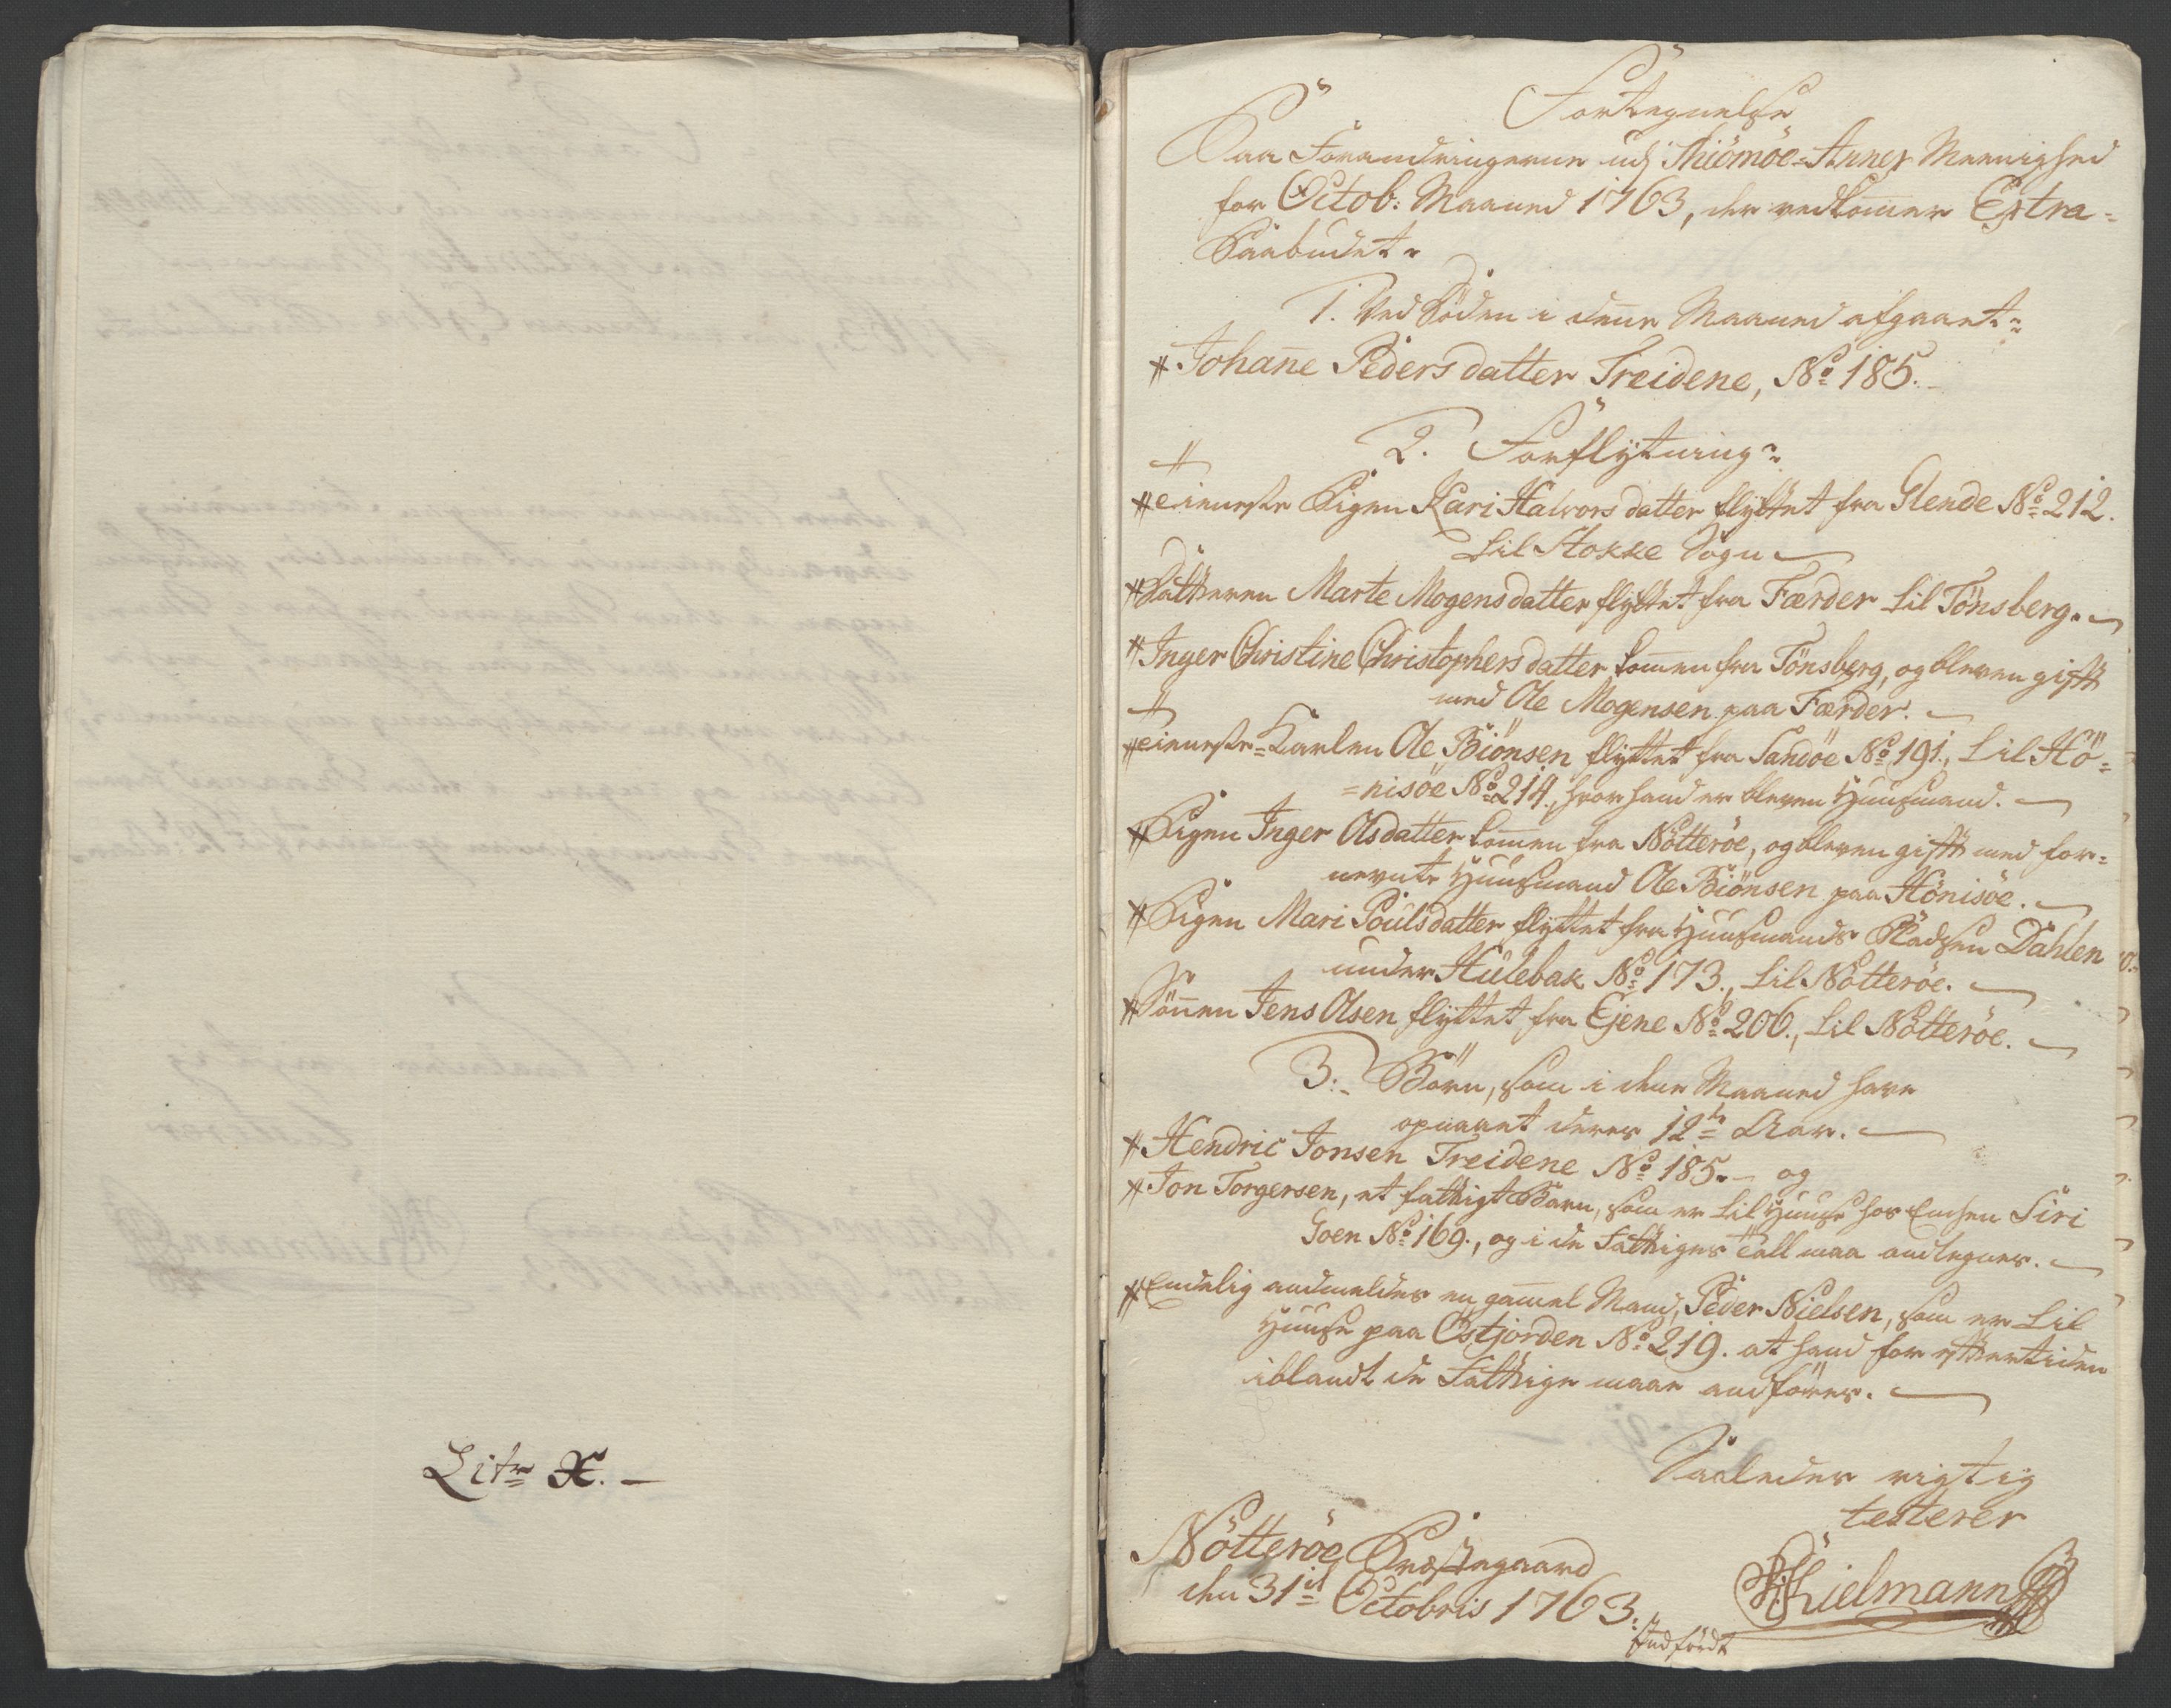 Litr X. —
Fortegnelse
Paa Forandringerne udj Thiömöe-Annex Meenighed
for Octob: Maaned 1763, der vedkom̄er Extra-
Paabudet.
1. Ved Döden i den̄e Maaned afgaaet.
Johan̄e Pedersdatter Treidene, No 185.
2. Forflytning.
Tieneste Pigen Kari Halvorsdatter flyttet fra Glende No 212.
til Stokke Sogn —
Datteren Marte Mogensdatter flyttet fra Færder til Tönsberg. —
Inger Christine Christophersdatter kom̄en fra Tönsberg, og bleven gift
med Ole Mogensen paa Færder. —
Tieneste-Karlen Ole Biönsen flyttet fra Sandöe No 191., til Hö-
=nisöe No 214., hvor hand er bleven Huusmand. —
Pigen Inger Olsdatter kom̄en fra Nötteröe, og bleven gift med for-
nevnte Huusmand Ole Biönsen paa Hönisöe. —
Pigen Mari Poulsdatter flyttet fra Huusmands Pladsen Dahlen
under Hulebak No 173., til Nötteröe. —
Sön̄en Jens Olsen flyttet fra Ejene No 206., til Nötteröe. —
3. Börn, som i den̄e Maaned have
opnaaet deres 12te Aar. —
Hendric Jonsen Treidene No 185. — og
Jon Torgersen, et fattigt Barn, som er til Huuse hos Enken Siri
Goen No 169., og i de Fattiges Tall maa andtegnes. —
Endelig andmeldes en gam̄el Mand, Peder Nielsen, som er til
Huuse paa Östjorden No 219. at hand for eftertiden
iblandt de Fattige maae andföres. —
Saaledes rigtig
testerer
Nötteröe Præstegaard
den 31id Octobris 1763.
Kielmann
Indfördt